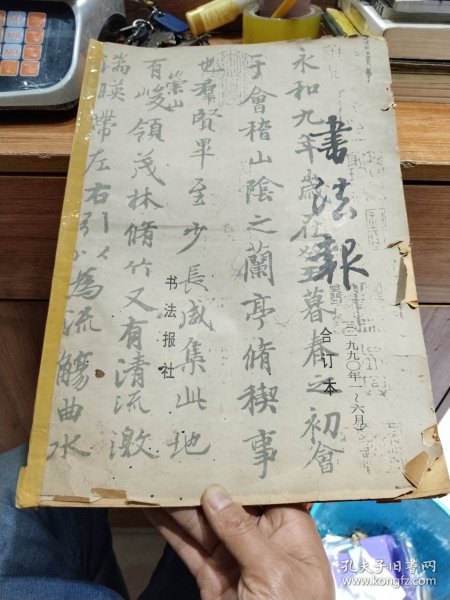 永和九年歲在癸丑暮春之初會
于會稽山陰之蘭亭脩稧事
也羣賢畢至少長咸集此地
有崇山峻領茂林脩竹又有清流激
湍暎帶左右引以為流觴曲水
書法報
合订本
(一九九〇年一~六月)
书法报社
孔夫子旧书网
www.kongfz.com